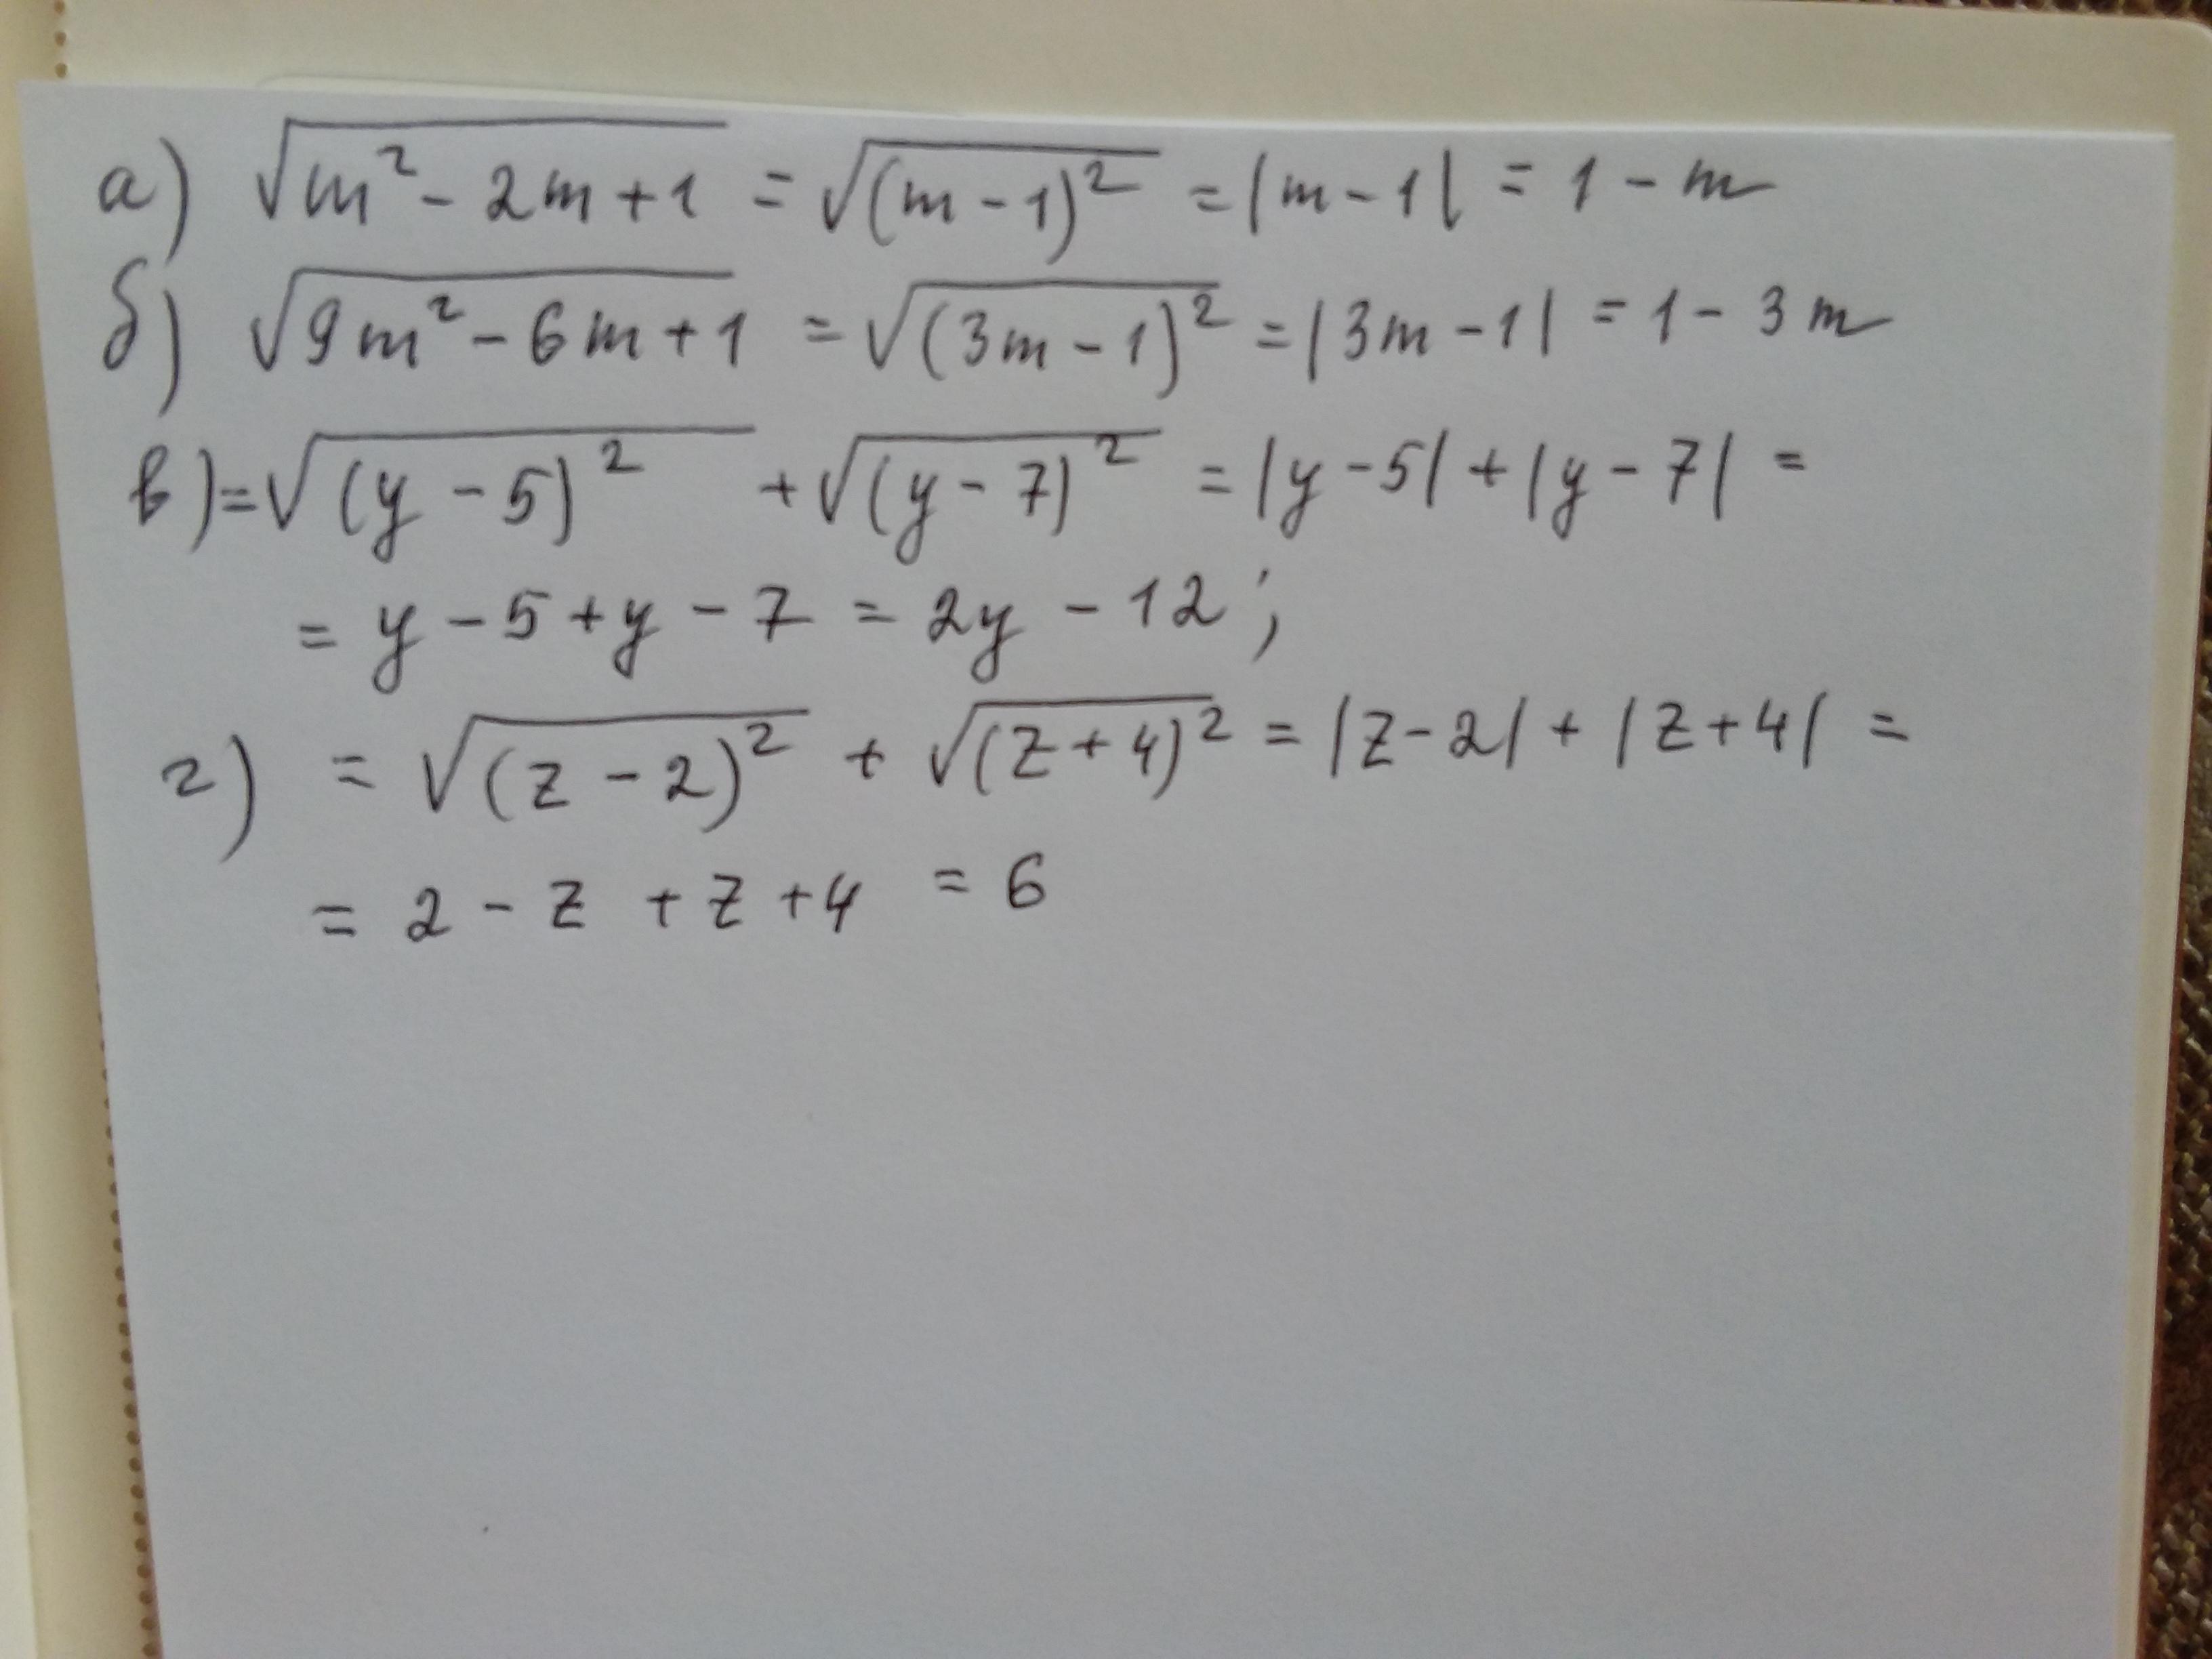 а) √(m² - 2m + 1) = √((m - 1)²) = |m - 1| = 1 - m
б) √(9m² - 6m + 1) = √((3m - 1)²) = |3m - 1| = 1 - 3m
в) = √((y - 5)²) + √((y - 7)²) = |y - 5| + |y - 7| =
= y - 5 + y - 7 = 2y - 12;
г) = √((z - 2)²) + √((z + 4)²) = |z - 2| + |z + 4| =
= 2 - z + z + 4 = 6